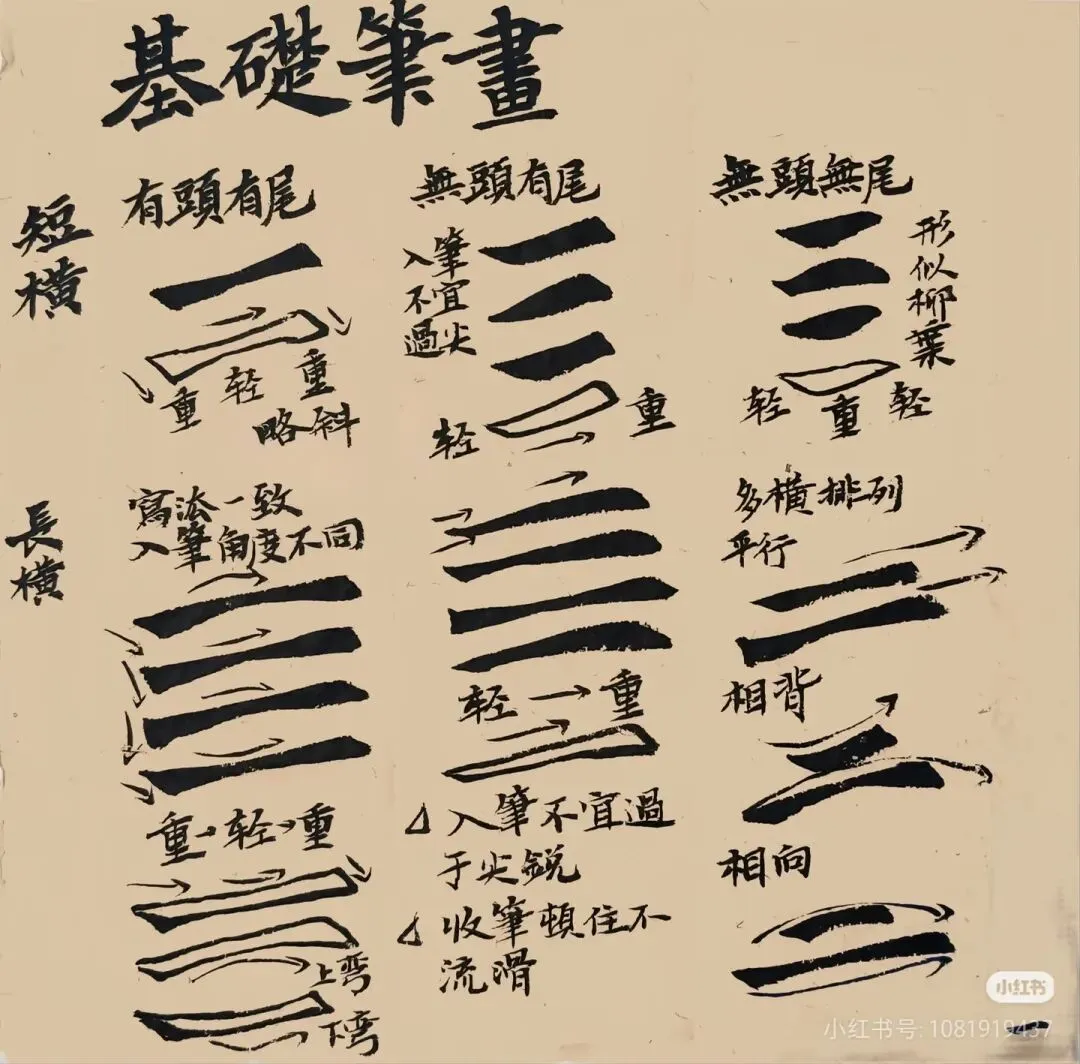 基礎筆畫
短橫
有頭有尾
重 轻 重
略斜
無頭有尾
入筆
不宜
過尖
轻 重
無頭無尾
形似柳葉
轻 重 轻
長橫
寫法一致
入筆角度不同
重→轻→重
上弯
下弯
轻→重
△入筆不宜過
于尖銳
△收筆頓住不
流滑
多橫排列
平行
相背
相向
小红书
小红书号: 1081919437